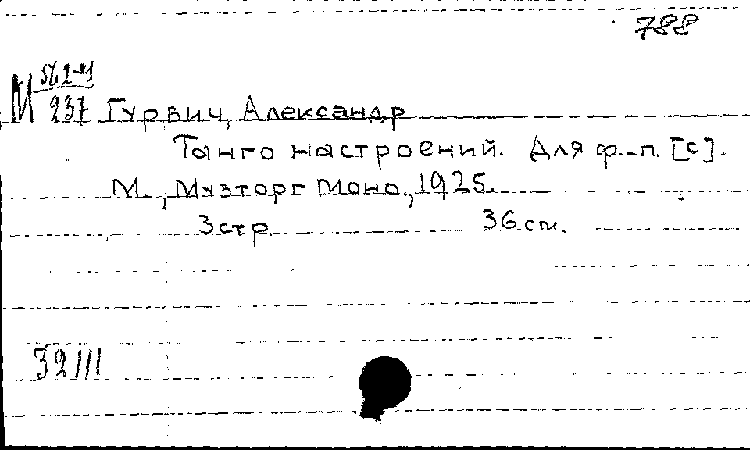 788
М
237 Гурвич, Александр
Танго настроений. Для ф.-п. [с].
М., Музторг Моно, 1925.
3 стр. 36 см.
32111